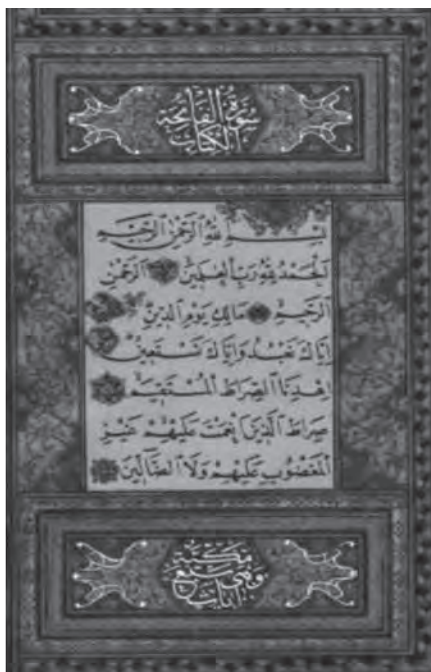 سُورَةُ الْفَاتِحَةِ
الْكِتَابِ
بِسْمِ اللّٰهِ الرَّحْمٰنِ الرَّحِيمِ
اَلْحَمْدُ لِلّٰهِ رَبِّ الْعٰلَمِينَ اَلرَّحْمٰنِ
الرَّحِيمِ مَالِكِ يَوْمِ الدِّينِ
اِيَّاكَ نَعْبُدُ وَاِيَّاكَ نَسْتَعِينُ
اِهْدِنَا الصِّرَاطَ الْمُسْتَقِيمَ
صِرَاطَ الَّذِينَ اَنْعَمْتَ عَلَيْهِمْ غَيْرِ
الْمَغْضُوبِ عَلَيْهِمْ وَلَا الضَّالِّينَ
مَكِّيَّةٌ
وَهِيَ سَبْعُ
اٰيَاتٍ